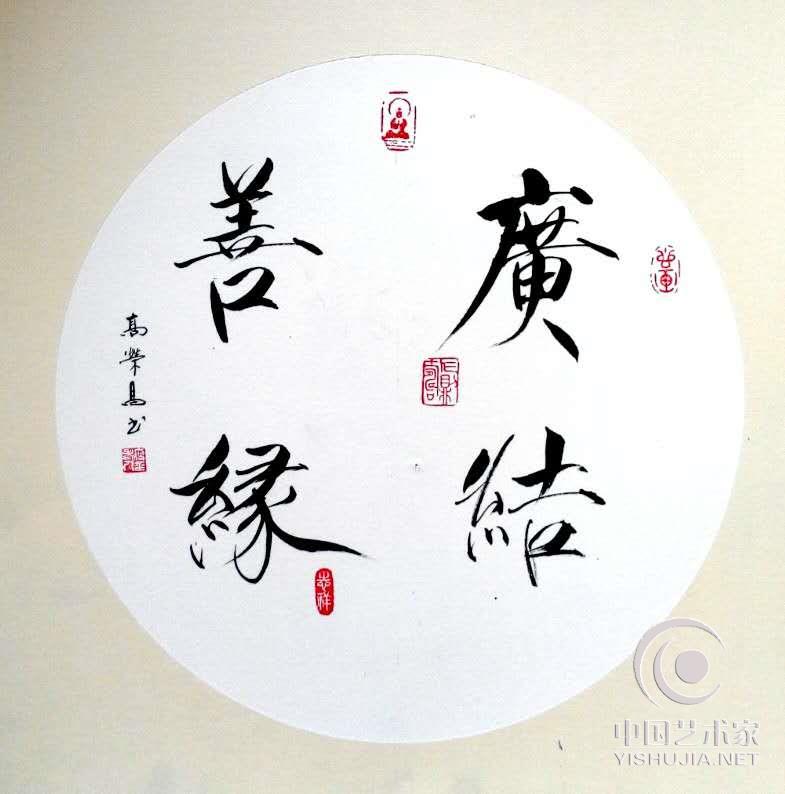 廣結
善緣
高榮昌书
中国艺术家
YISHUJIA.NET